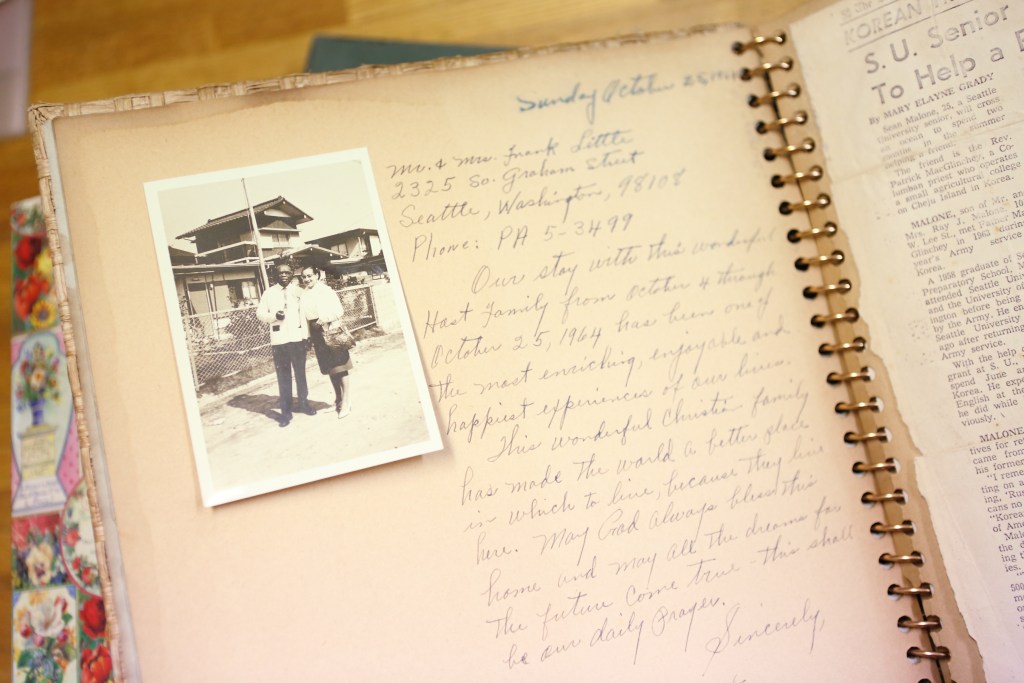 Sunday October 25 1964
Mr. & Mrs. Frank Little
2325 So. Graham Street
Seattle, Washington, 98108
Phone: PA 5-3499
Our stay with this wonderful
Host Family from October 4 through
October 25, 1964 has been one of
the most enriching, enjoyable and
happiest experiences of our lives.
This wonderful Christian family
has made the world a better place
in which to live, because they live
here. May God always bless this
home and may all the dreams for
the future come true this shall
be our daily prayer.
Sincerely,
KOREAN
S. U. Senior
To Help a
By MARY ELAYNE GRADY
Sean Malone, 25, a Seattle
University senior, will cross
an ocean to spend two
months in the summer
helping a friend.
The friend is the Rev.
Patrick MacGlinchey, a Co-
lumban priest who operates
a small agricultural college
on Cheju Island in Korea.
MALONE, son of Mr. and
Mrs. Ray J. Malone, 10
W. Lee St., met Father Ma
Glinchey in 1963 during
year's Army service
Korea.
A 1958 graduate of Se
Preparatory School, M
attended Seattle Uni
and the University of
ington before being
by the Army. He en
Seattle University
ago after returning
Army service.
With the help
grant at S. U.,
spend June and
Korea. He exp
English at the
he did while
viously.
MALONE,
tives for re
came from
his former
"I reme
ting on a
ing, 'Rus
cans no
"Korea
of Ame
Malo
the d
ing t
ies.
500